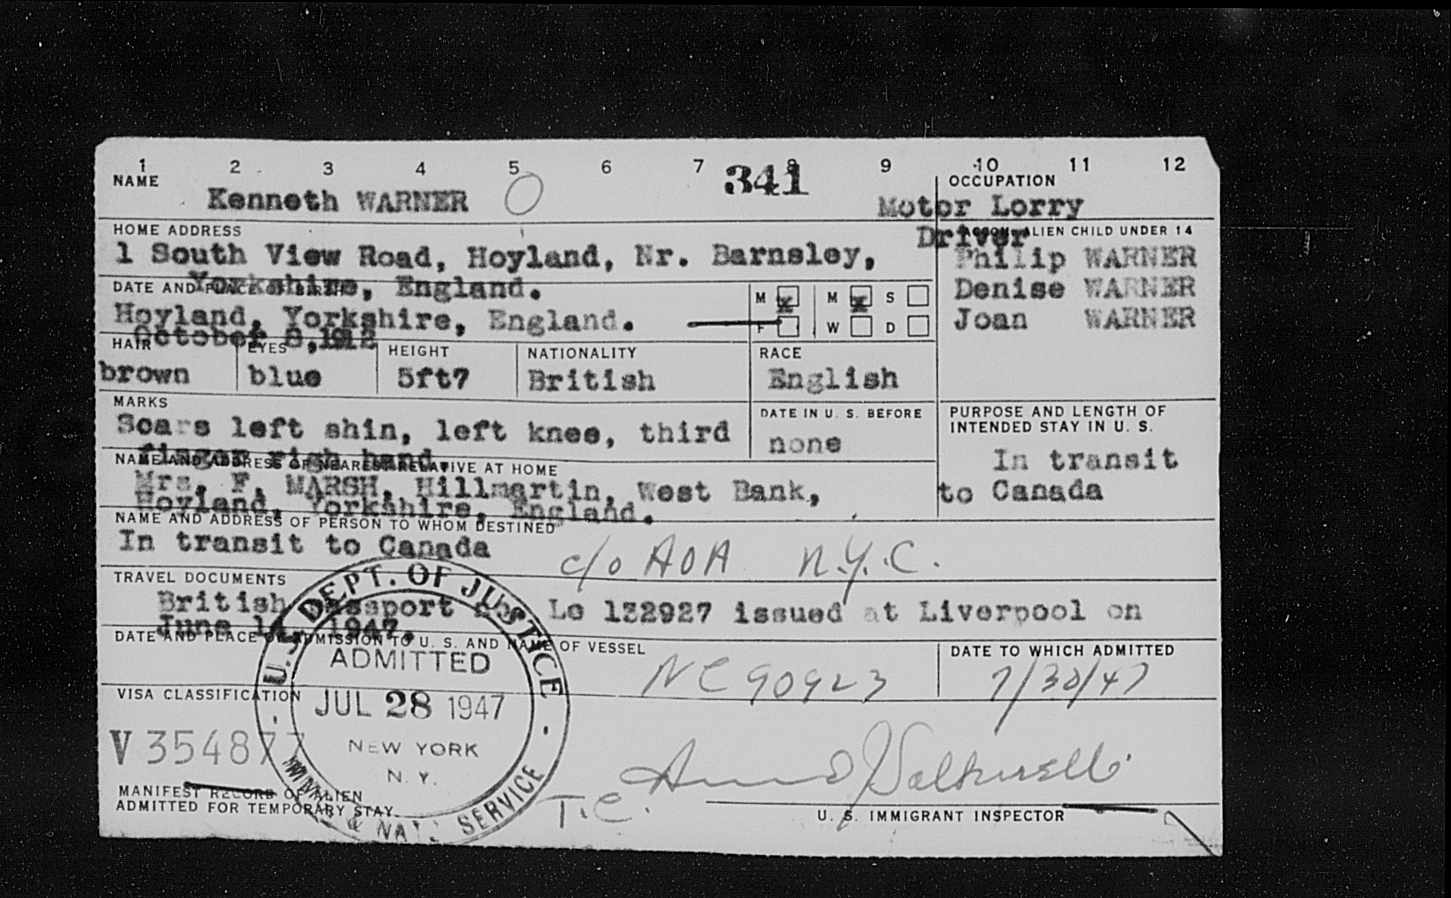 1 2 3 4 5 6 7 8 9 10 11 12
NAME
341
OCCUPATION
Kenneth WARNER
Motor Lorry
Driver
HOME ADDRESS
ALIEN CHILD UNDER 14
1 South View Road, Hoyland, Nr. Barnsley,
Yorkshire, England.
Philip WARNER
Denise WARNER
Joan WARNER
DATE AND PLACE OF BIRTH
M x M x S
F W D
Hoyland, Yorkshire, England.
October 8, 1912
HAIR EYES HEIGHT NATIONALITY RACE
brown blue 5ft7 British English
MARKS
DATE IN U. S. BEFORE
PURPOSE AND LENGTH OF
INTENDED STAY IN U. S.
Scars left shin, left knee, third
finger righ hand.
none
In transit
to Canada
NAME AND ADDRESS OF NEAREST RELATIVE AT HOME
Mrs. F. MARSH, Hillmartin, West Bank,
Hoyland, Yorkshire, England.
NAME AND ADDRESS OF PERSON TO WHOM DESTINED
In transit to Canada c/o AOA N.Y.C.
TRAVEL DOCUMENTS
British Passport Lo 132927 issued at Liverpool on
June 1947.
DATE AND PLACE OF ADMISSION TO U. S. AND NAME OF VESSEL
DATE TO WHICH ADMITTED
NC90923
7/30/47
VISA CLASSIFICATION
V354877
U.S. DEPT. OF JUSTICE
ADMITTED
JUL 28 1947
NEW YORK
N.Y.
& NAT. SERVICE
T.C.
MANIFEST RECORD OF ALIEN
ADMITTED FOR TEMPORARY STAY
U. S. IMMIGRANT INSPECTOR